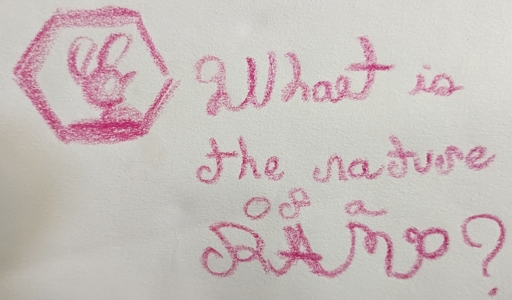 What is
the nature
of a
RAÑO?